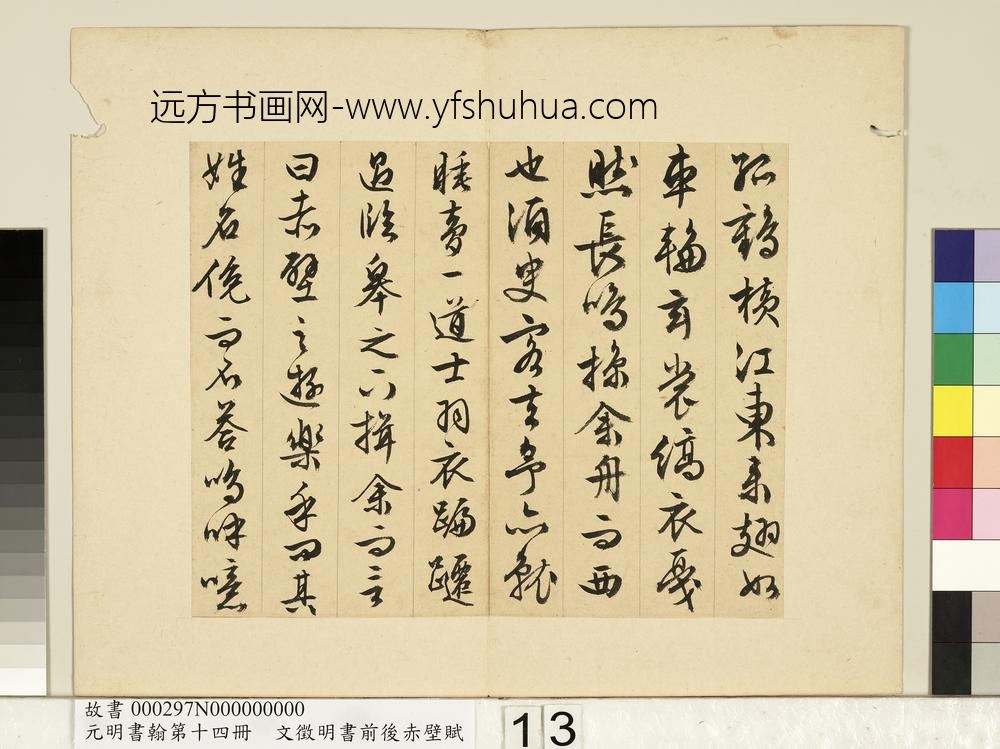 远方书画网-www.yfshuhua.com
孤鶴橫江東來翅如
車輪玄裳縞衣戛
然長鳴掠余舟而西
也須臾客去予亦就
睡夢一道士羽衣蹁躚
過臨皋之下揖余而言
曰赤壁之遊樂乎問其
姓名俛而不答嗚呼噫
故書 000297N000000000
元明書翰第十四冊 文徵明書前後赤壁賦
13